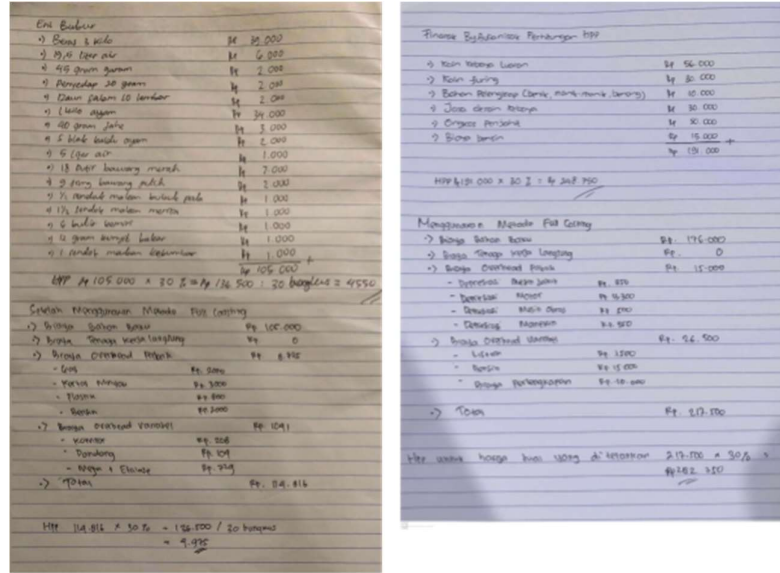 Eni Bubur
Beras 3 kilo Rp 39.000
liter air Rp 6.000
45 gram garam Rp 2.000
Penyedap 20 gram Rp 2.000
Daun Salam 10 lembar Rp 2.000
1 kilo ayam Rp 34.000
40 gram Jahe Rp 3.000
kaldu ayam Rp 2.000
5 liter air Rp 1.000
18 butir bawang merah Rp 7.000
9 siong bawang putih Rp 2.000
1½ sendok makan Rp 1.000
1½ sendok makan merica Rp 1.000
6 butir Rp 1.000
12 gram Rp 1.000
1 sendok makan ketumbar Rp 1.000 +
Rp 105.000
HPP Rp 105.000 x 30 % = Rp 136.500 : 30 bungkus = 4550
Setelah Menggunakan Metode Full Costing
Biaya Bahan Baku Rp. 105.000
Biaya Tenaga Kerja langsung Rp. 0
Biaya Overhead Pabrik Rp.
- Gas Rp.
- Kertas Minyak Rp. 3000
- Plastik Rp. 800
- Bensin Rp. 2000
Biaya Overhead Variabel Rp. 1041
- Kompor Rp. 208
- Dandang Rp. 104
- Meja + Etalase Rp. 729
Total Rp. 114.816
HPP 114.816 x 30 % = / 30 bungkus
= 4.975
Finance By Perhitungan HPP
Kain Kebaya Rp 56.000
Kain furing Rp 30.000
Bahan Pelengkap Rp 10.000
Jasa desain Kebaya Rp 30.000
Ongkos Penjahit Rp 50.000
Biaya bensin Rp 15.000 +
Rp 191.000
HPP Rp 191.000 x 30 % = Rp 248.300
Menggunakan Metode Full Costing
Biaya Bahan Baku Rp. 176.000
Biaya Tenaga Kerja Langsung Rp. 0
Biaya Overhead Pabrik Rp. 15.000
- Depresiasi Mesin Jahit Rp.
- Depresiasi Motor Rp.
- Depresiasi Mesin Obras Rp. 500
- Depresiasi Manekin Rp.
Biaya Overhead Variabel Rp. 26.500
- Listrik Rp. 1500
- Bensin Rp. 15.000
- Biaya Perlengkapan Rp. 10.000
Total Rp. 217.500
HPP untuk harga jual yang di tetapkan 217.500 x 30 %
Rp 282.750